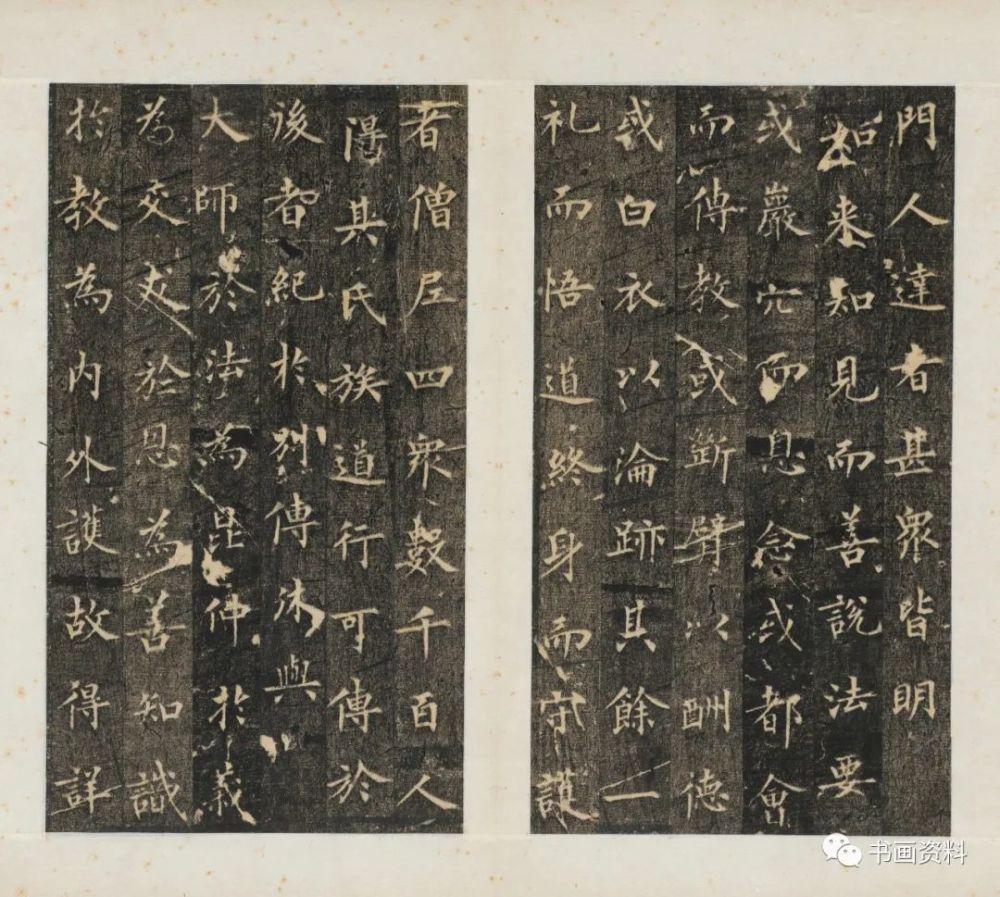 門人達者甚眾皆明
如来知見而善說法要
或巖穴而息念或都會
而傳教或斷臂以酬德
或白衣以淪跡其餘一
礼而悟道終身而守護
者僧尼四眾數千百人
得其氏族道行可傳於
後者紀於別傳休與
大師於法為昆仲於義
為交友於恩為善知識
於教為內外護故得詳
书画资料